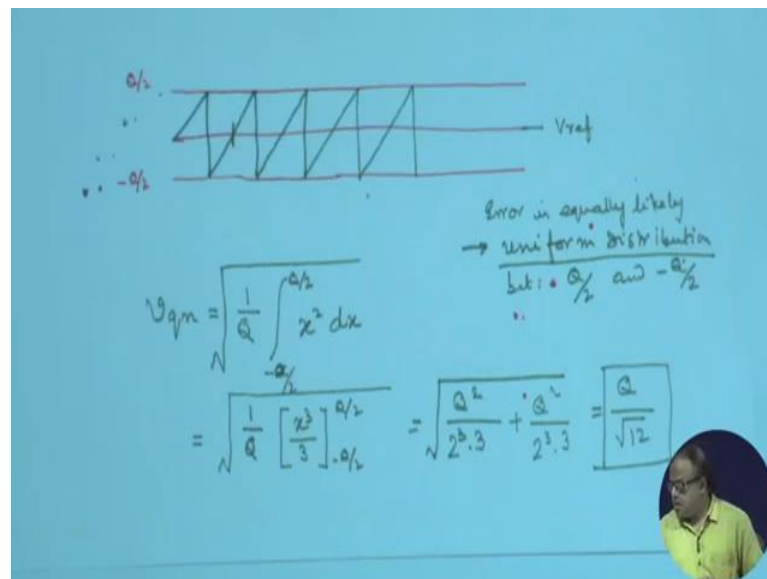 Q/2
Vref
-Q/2
Error is equally likely
→ uniform distribution
bet: Q/2 and -Q/2
Vqn = √(1/Q ∫_{-Q/2}^{Q/2} x² dx)
= √(1/Q [x³/3]_{-Q/2}^{Q/2}) = √(Q²/2³.3 + Q²/2³.3) = Q/√12